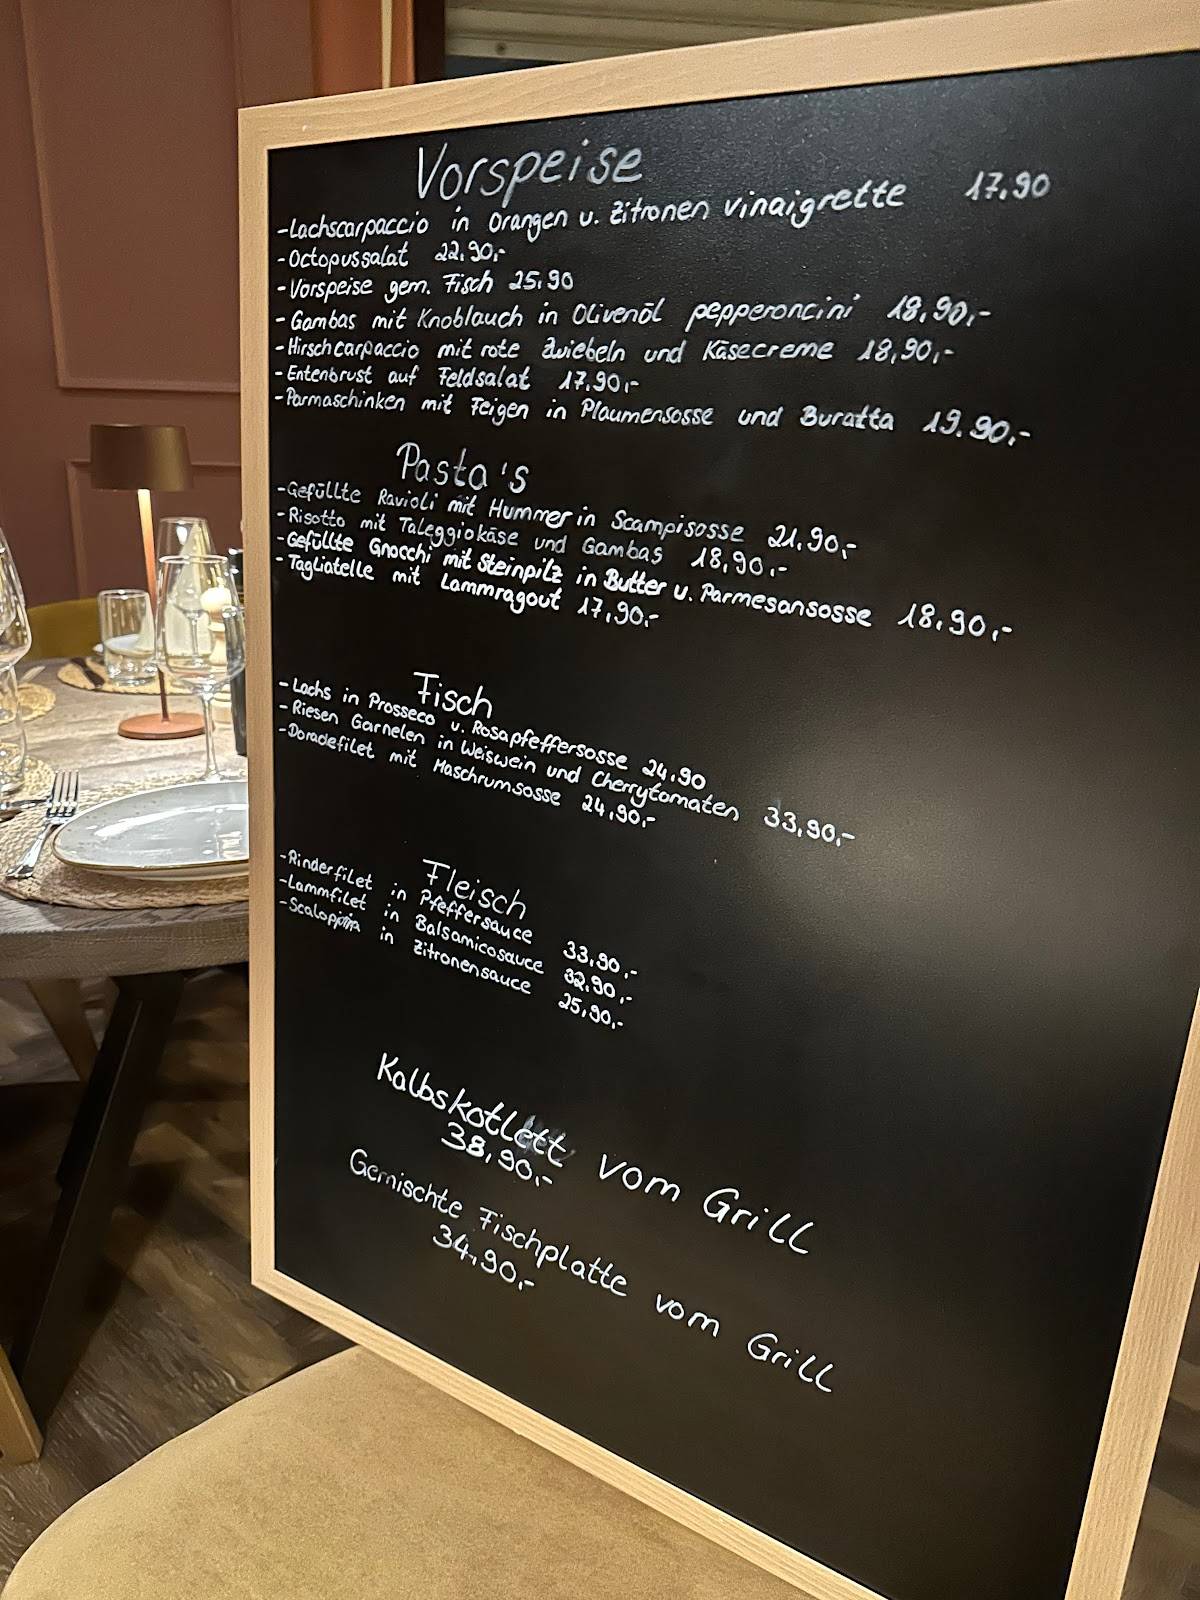 Vorspeise
-Lachscarpaccio in Orangen u. Zitronen vinaigrette 17.90
-Octopussalat 22,90,-
-Vorspeise gem. Fisch 25.90
-Gambas mit Knoblauch in Olivenöl pepperoncini 18,90,-
-Hirschcarpaccio mit rote Zwiebeln und Käsecreme 18,90,-
-Entenbrust auf Feldsalat 17.90,-
-Parmaschinken mit Feigen in Plaumensosse und Buratta 19.90,-
Pasta's
-Gefüllte Ravioli mit Hummer in Scampisosse 21,90,-
-Risotto mit Taleggiokäse und Gambas 18,90,-
-Gefüllte Gnocchi mit Steinpilz in Butter u. Parmesansosse 18,90,-
-Tagliatelle mit Lammragout 17,90,-
Fisch
-Lachs in Prosseco u. Rosapfeffersosse 24,90
-Riesen Garnelen in Weiswein und Cherrytomaten 33,90,-
-Doradefilet mit Maschrumsosse 24,90,-
Fleisch
-Rinderfilet in Pfeffersauce 33,90,-
-Lammfilet in Balsamicosauce 32,90,-
-Scaloppina in Zitronensauce 25,90,-
Kalbskotlett vom Grill
38,90,-
Gemischte Fischplatte vom Grill
34,90,-